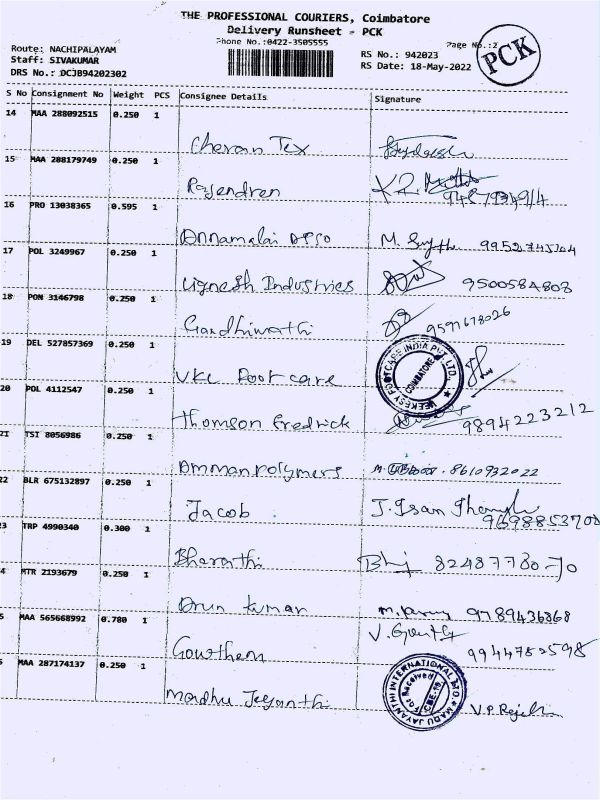 THE PROFESSIONAL COURIERS, Coimbatore
Delivery Runsheet - PCK
Phone No.:0422-3505555
Page No.:2
PCK
Route: NACHIPALAYAM
Staff: SIVAKUMAR
DRS No.: DCJB94202302
RS No.: 942023
RS Date: 18-May-2022
S No Consignment No Weight PCS Consignee Details Signature
14 MAA 288092515 0.250 1
Cheran Tex
15 MAA 288179749 0.250 1
Rajendren
16 PRO 13038365 0.595 1
Annamalai M. 9952745104
17 POL 3249967 0.250 1
Vignesh Industries 9500584808
18 PON 3146798 0.250 1
Gandhimathi 9597678026
19 DEL 527857369 0.250 1
VKC Foot care
VEEKESY FOOTCARE INDIA PVT LTD. COIMBATORE
20 POL 4112547 0.250 1
Thomson Fredrick 9894223212
21 TSI 8056986 0.250 1
Amman polymers M. 8610932022
22 BLR 675132897 0.250 1
Jacob J. 9698853708
23 TRP 4990340 0.300 1
Bharathi 8248778070
4 MTR 2193679 0.250 1
Arun kumar 9789436868
5 MAA 565668992 0.780 1
Gowthem V. 9944752598
6 MAA 287174137 0.250 1
Madhu Jeyanthi V.P.
MADU JAYANTHI INTERNATIONAL LTD Received